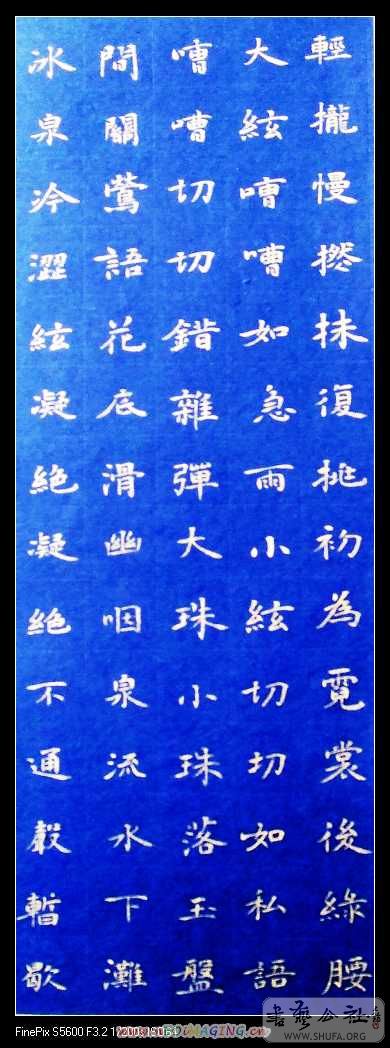 輕攏慢撚抹復挑初為霓裳後綠腰
大絃嘈嘈如急雨小絃切切如私語
嘈嘈切切錯雜彈大珠小珠落玉盤
間關鶯語花底滑幽咽泉流水下灘
冰泉冷澀絃凝絕凝絕不通聲暫歇
書藝公社
www.SHUFA.ORG
FinePix S5600 F3.2